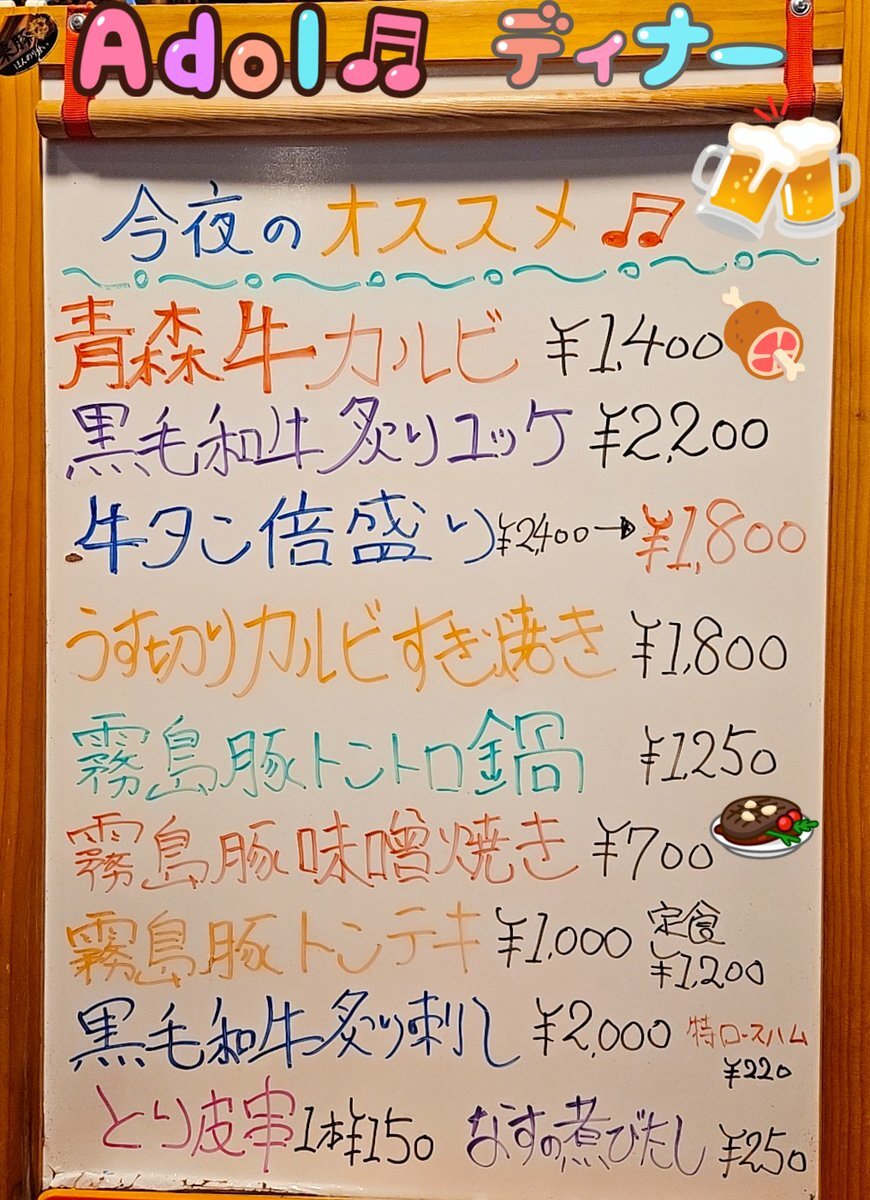 Adol♬ ディナー
今夜のオススメ♬
青森牛カルビ ¥1,400
黒毛和牛炙りユッケ ¥2,200
牛タン倍盛り ¥2,400→¥1,800
うす切りカルビすき焼き ¥1,800
霧島豚トントロ鍋 ¥1,250
霧島豚味噌焼き ¥700
霧島豚トンテキ ¥1,000 定食 ¥1,200
黒毛和牛炙り刺し ¥2,000 特ロースハム ¥220
とり皮串 1本¥150 なすの煮びたし ¥250